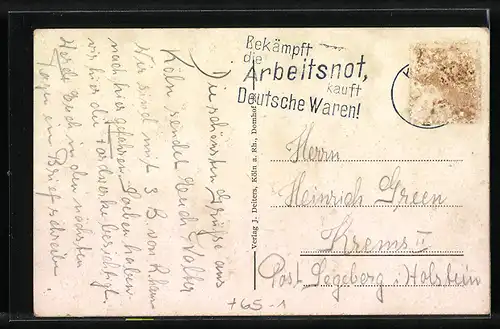 Die schönsten Grüße aus
Köln sendet Euch Walter
Wir sind mit 3 B von R. hans
nach hier gefahren. Soeben haben
wir hier die Fordwerke besichtigt.
Werde Euch in den nächsten
Tagen ein Brief schreiben
Verlag J. Deiters, Köln a. Rh.,
Bekämpft
die
Arbeitsnot,
kauft
Deutsche Waren!
K
Herrn
Heinrich Green
Krems II
Post Segeberg i/Holstein
+65-1